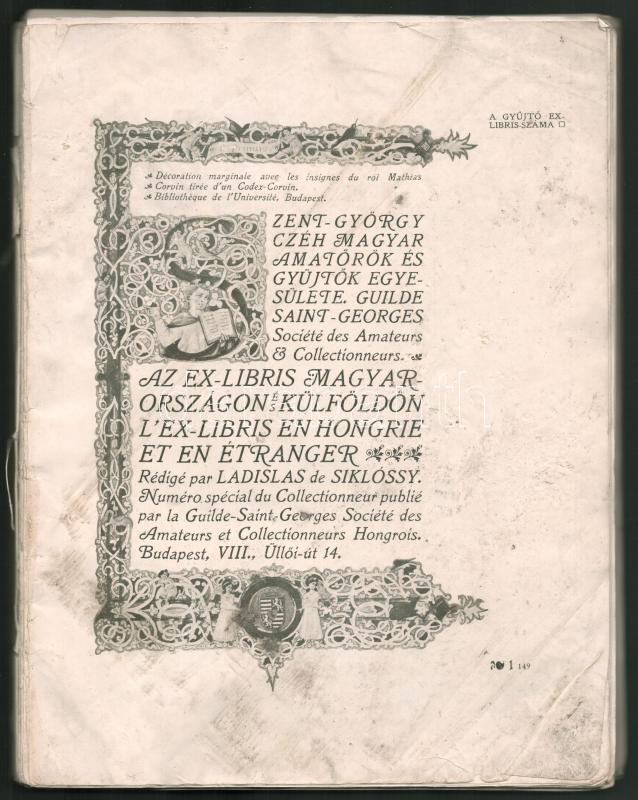 A GYŰJTŐ EX-
LIBRIS-SZÁMA □
Décoration marginale avec les insignes du roi Mathias
Corvin tirée d'un Codex-Corvin.
Bibliothèque de l'Université, Budapest.
SZENT-GYÖRGY
CZÉH MAGYAR
AMATŐRÖK ÉS
GYŰJTŐK EGYE-
SÜLETE. GUILDE
SAINT-GEORGES
Société des Amateurs
& Collectionneurs.
AZ EX-LIBRIS MAGYAR-
ORSZÁGON ÉS KÜLFÖLDÖN
L'EX-LIBRIS EN HONGRIE
ET EN ÉTRANGER
Rédigé par LADISLAS de SIKLÓSSY.
Numéro spécial du Collectionneur publié
par la Guilde-Saint-Georges Société des
Amateurs et Collectionneurs Hongrois.
Budapest, VIII., Üllői-út 14.
1 149